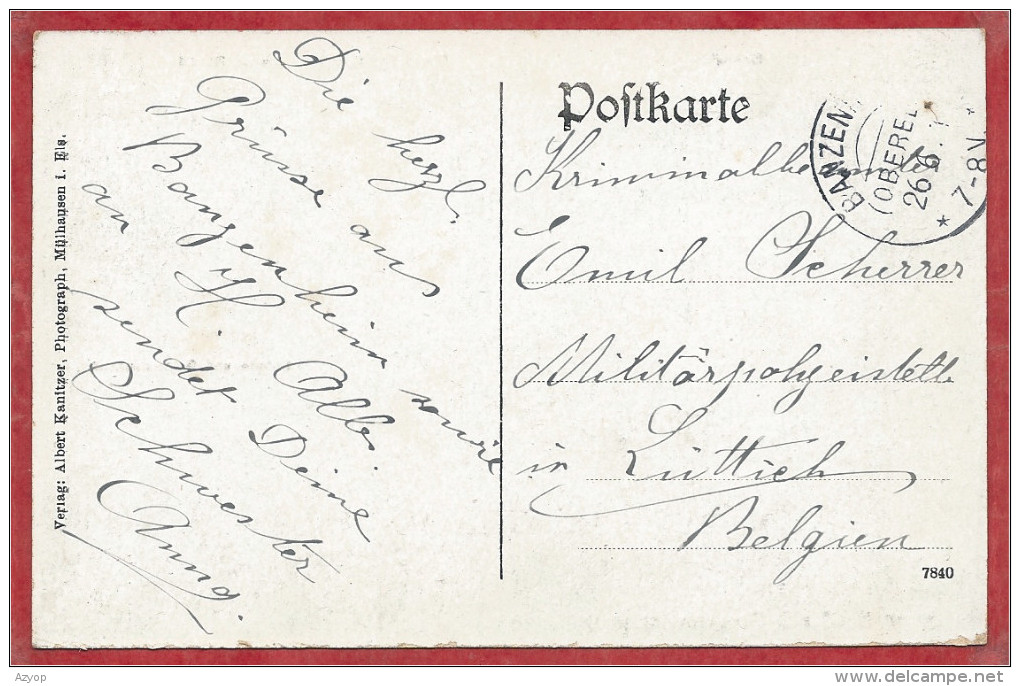 Verlag: Albert Kanitzer, Photograph, Mülhausen i. Els.
Die herzl.
Grüsse aus
Banzenheim sowie
an H. Albi
sendet Deine
Schwester
Anna.
Postkarte
BANZEN
(OBEREL
26.6.1
7-8V.
*
Kriminalbeamter
Emil Scherrer
Militärpolizeistelle
in Lüttich
Belgien
7840
Azyop
delcampe.net